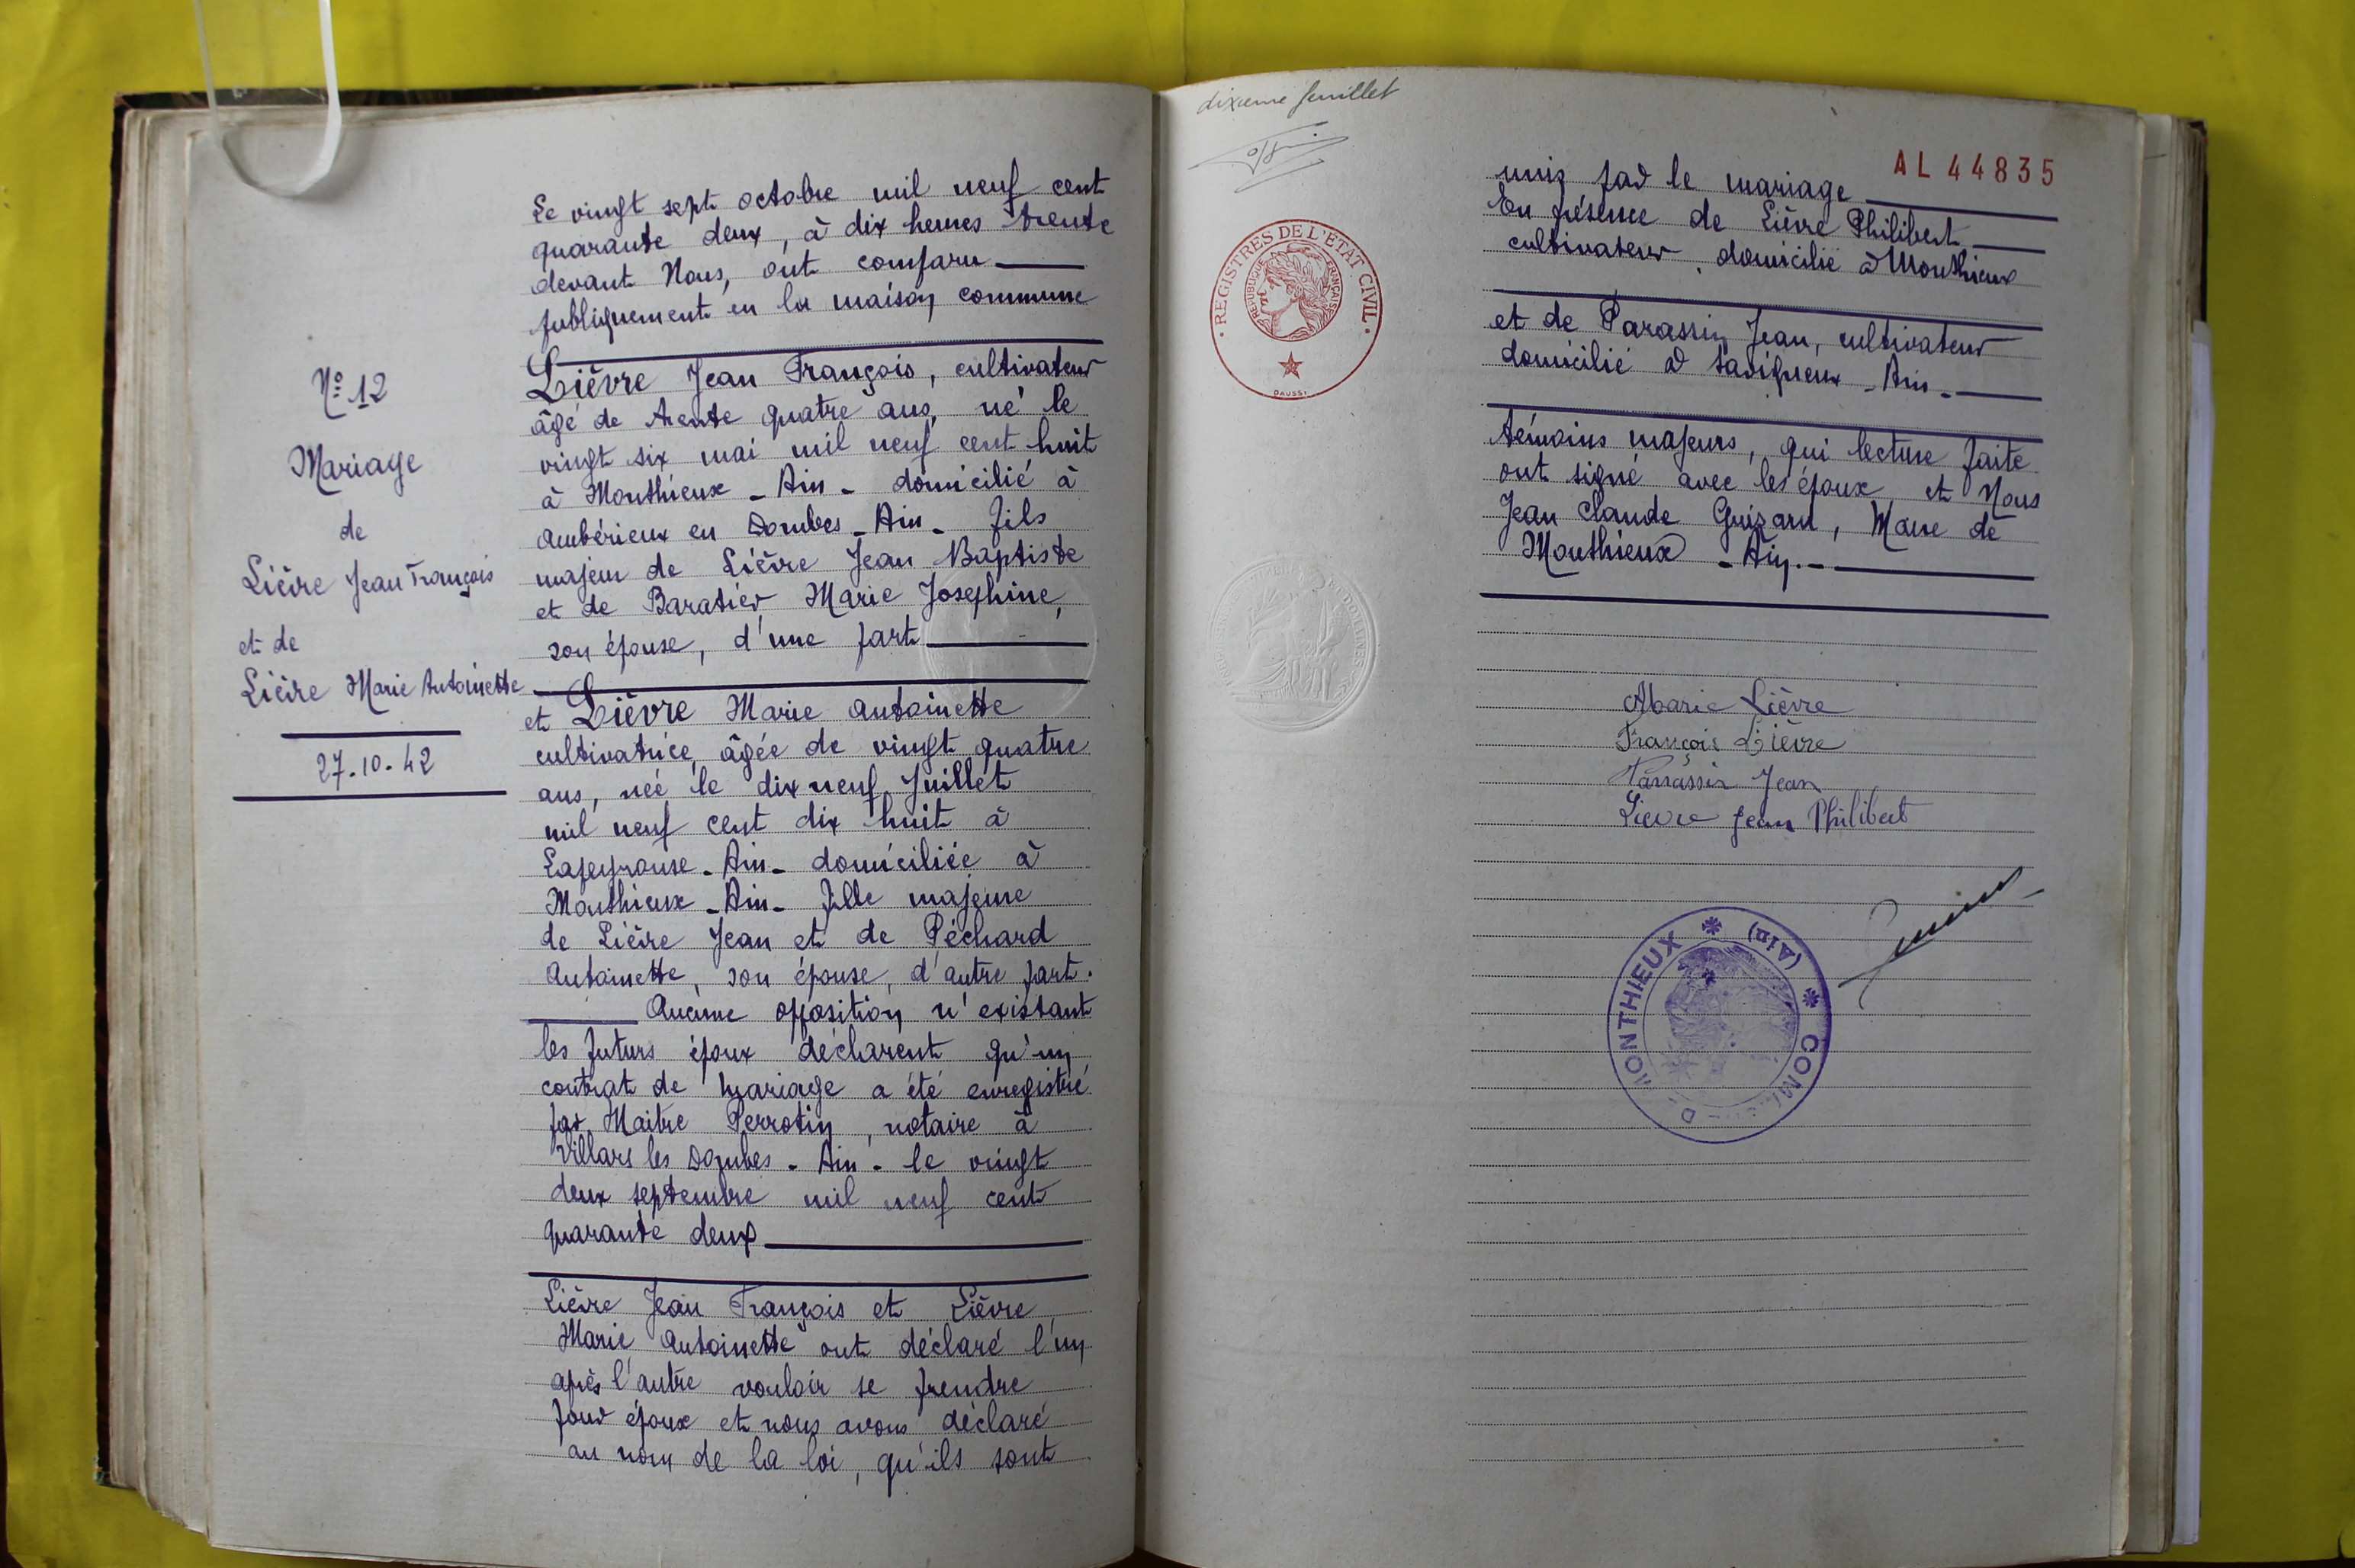 N° 12
Mariage
de
Lièvre Jean François
et de
Lièvre Marie Antoinette
27.10.42
Le vingt sept octobre mil neuf cent
quarante deux, à dix heures trente
devant Nous, ont comparu
publiquement en la maison commune
Lièvre Jean François, cultivateur
âgé de trente quatre ans, né le
vingt six mai mil neuf cent huit
à Monthieux - Ain - domicilié à
Ambérieux en Dombes - Ain - fils
majeur de Lièvre Jean Baptiste
et de Baratier Marie Josephine,
son épouse, d'une part
et Lièvre Marie Antoinette
cultivatrice, âgée de vingt quatre
ans, née le dix neuf Juillet
mil neuf cent dix huit à
Lapeyrouse - Ain - domiciliée à
Monthieux - Ain - fille majeure
de Lièvre Jean et de Péchard
Antoinette, son épouse, d'autre part.
Aucune opposition n'existant
les futurs époux déclarent qu'un
contrat de mariage a été enregistré
par Maitre Perrotin, notaire à
Villars les Dombes - Ain - le vingt
deux septembre mil neuf cent
quarante deux
Lièvre Jean François et Lièvre
Marie Antoinette ont déclaré l'un
après l'autre vouloir se prendre
pour époux et nous avons déclaré
au nom de la loi, qu'ils sont
dixième feuillet
REGISTRES DE L'ÉTAT CIVIL
RÉPUBLIQUE FRANÇAISE
DAUSSY
AL 44835
unis par le mariage
En présence de Lièvre Philibert
cultivateur, domicilié à Monthieux
et de Parassin Jean, cultivateur
domicilié à Savigneux - Ain -
témoins majeurs, qui lecture faite
ont signé avec les époux et Nous
Jean Claude Guizard, Maire de
Monthieux - Ain. -
Marie Lièvre
François Lièvre
Parrassin Jean
Lievre Jean Philibert
COMMUNE DE MONTHIEUX (Ain)